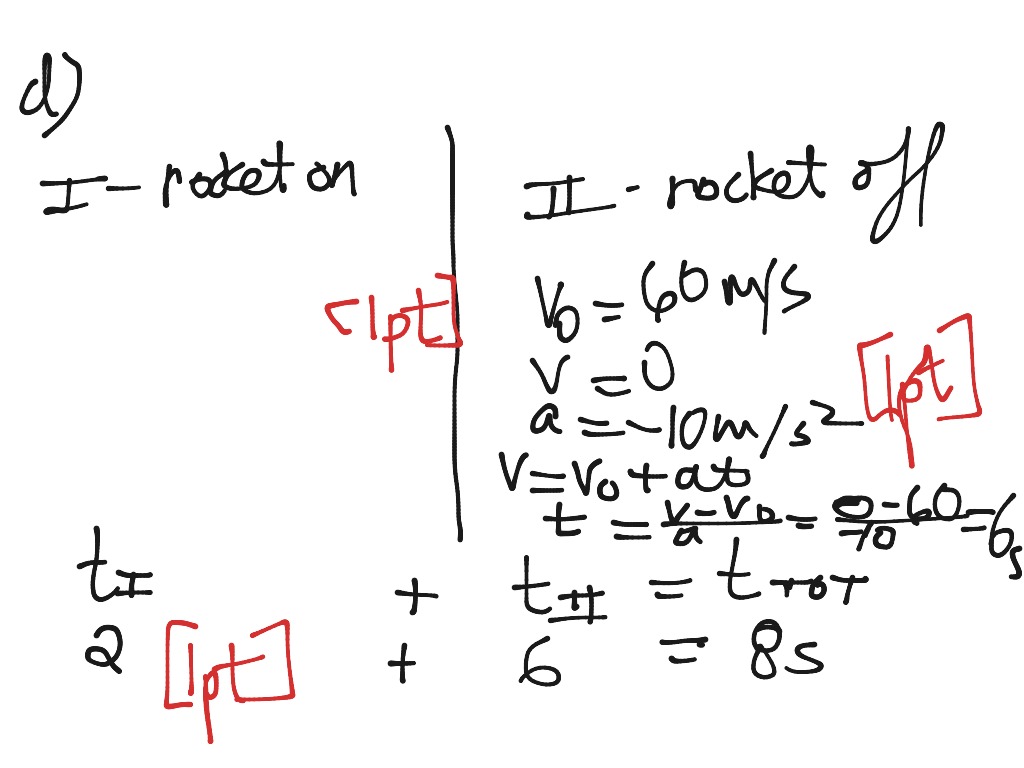 d)
I - rocket on
II - rocket off
V₀ = 60 m/s
[1pt]
V = 0
[1pt]
a = -10 m/s²
V = V₀ + at
t = (V - V₀)/a = (0 - 60)/-10 = 6s
t_I + t_II = t_TOT
2 [1pt] + 6 = 8s